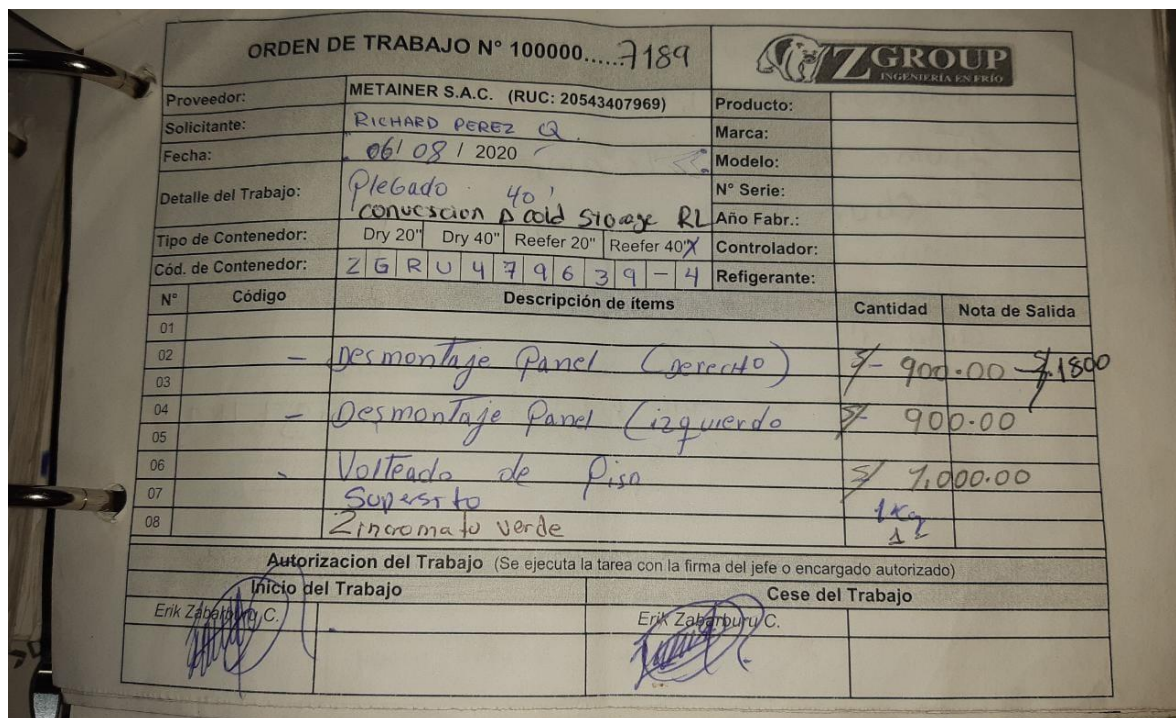 ORDEN DE TRABAJO N° 100000......7189
ZGROUP
INGENIERÍA EN FRÍO
Proveedor: METAINER S.A.C. (RUC: 20543407969) Producto:
Solicitante: RICHARD PEREZ Q. Marca:
Fecha: 06/08/2020 Modelo:
Detalle del Trabajo: Plegado 40' N° Serie:
conversion A cold Storage RL Año Fabr.:
Tipo de Contenedor: Dry 20" Dry 40" Reefer 20" Reefer 40"X Controlador:
Cód. de Contenedor: ZGRU479639-4 Refigerante:
N° Código Descripción de ítems Cantidad Nota de Salida
01
02 - Desmontaje Panel (Derecho) S/- 900.00 S/.1800
03
04 - Desmontaje Panel (izquierdo S/- 900.00
05
06 - Volteado de Piso S/ 1,000.00
07 Supersito 1 Kg
08 Zincromato verde
Autorizacion del Trabajo (Se ejecuta la tarea con la firma del jefe o encargado autorizado)
Inicio del Trabajo Cese del Trabajo
Erik Zabarburu C. Erik Zabarburu C.